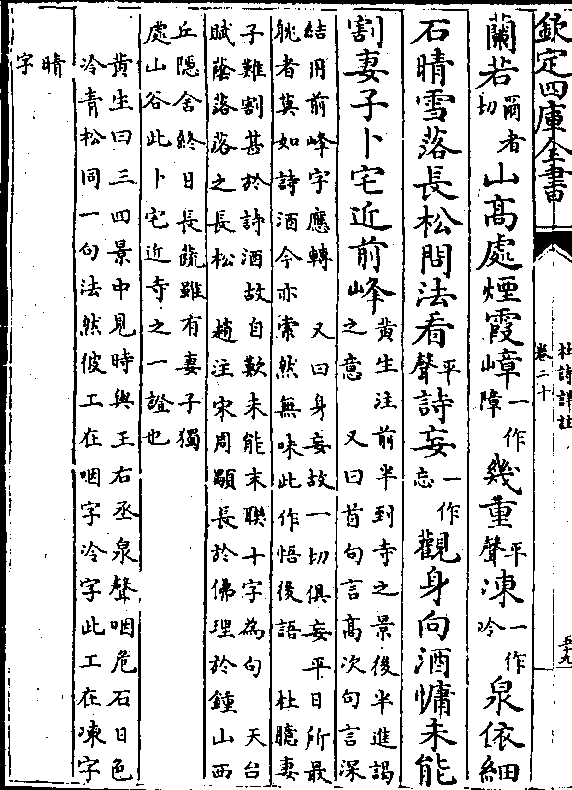 欽定四庫全書
杜詩詳註
卷二十
蘭若爾者切山高處煙霞嶂一作障幾重平聲凍一作冷泉依細
石晴雪落長松問法看平聲詩妄一作忘觀身向酒慵未能
割妻子卜宅近前峰黄生注前半到寺之景後半進謁之意 又曰首句言高次句言深
結用前峰字應轉 又曰身妄故一切俱妄平日所最
躭者莫如詩酒今亦索然無味此作悟後語 杜臆妻
子難割甚於詩酒故自歎未能末聯十字為句 天台
賦蔭落落之長松 趙注宋周顒長於佛理於鍾山西
丘隱舍終日長蔬雖有妻子獨
處山谷此卜宅近寺之一證也
黄生曰三四景中見時與王右丞泉聲咽危石日色
冷青松同一句法然彼工在咽字冷字此工在凍字
晴字